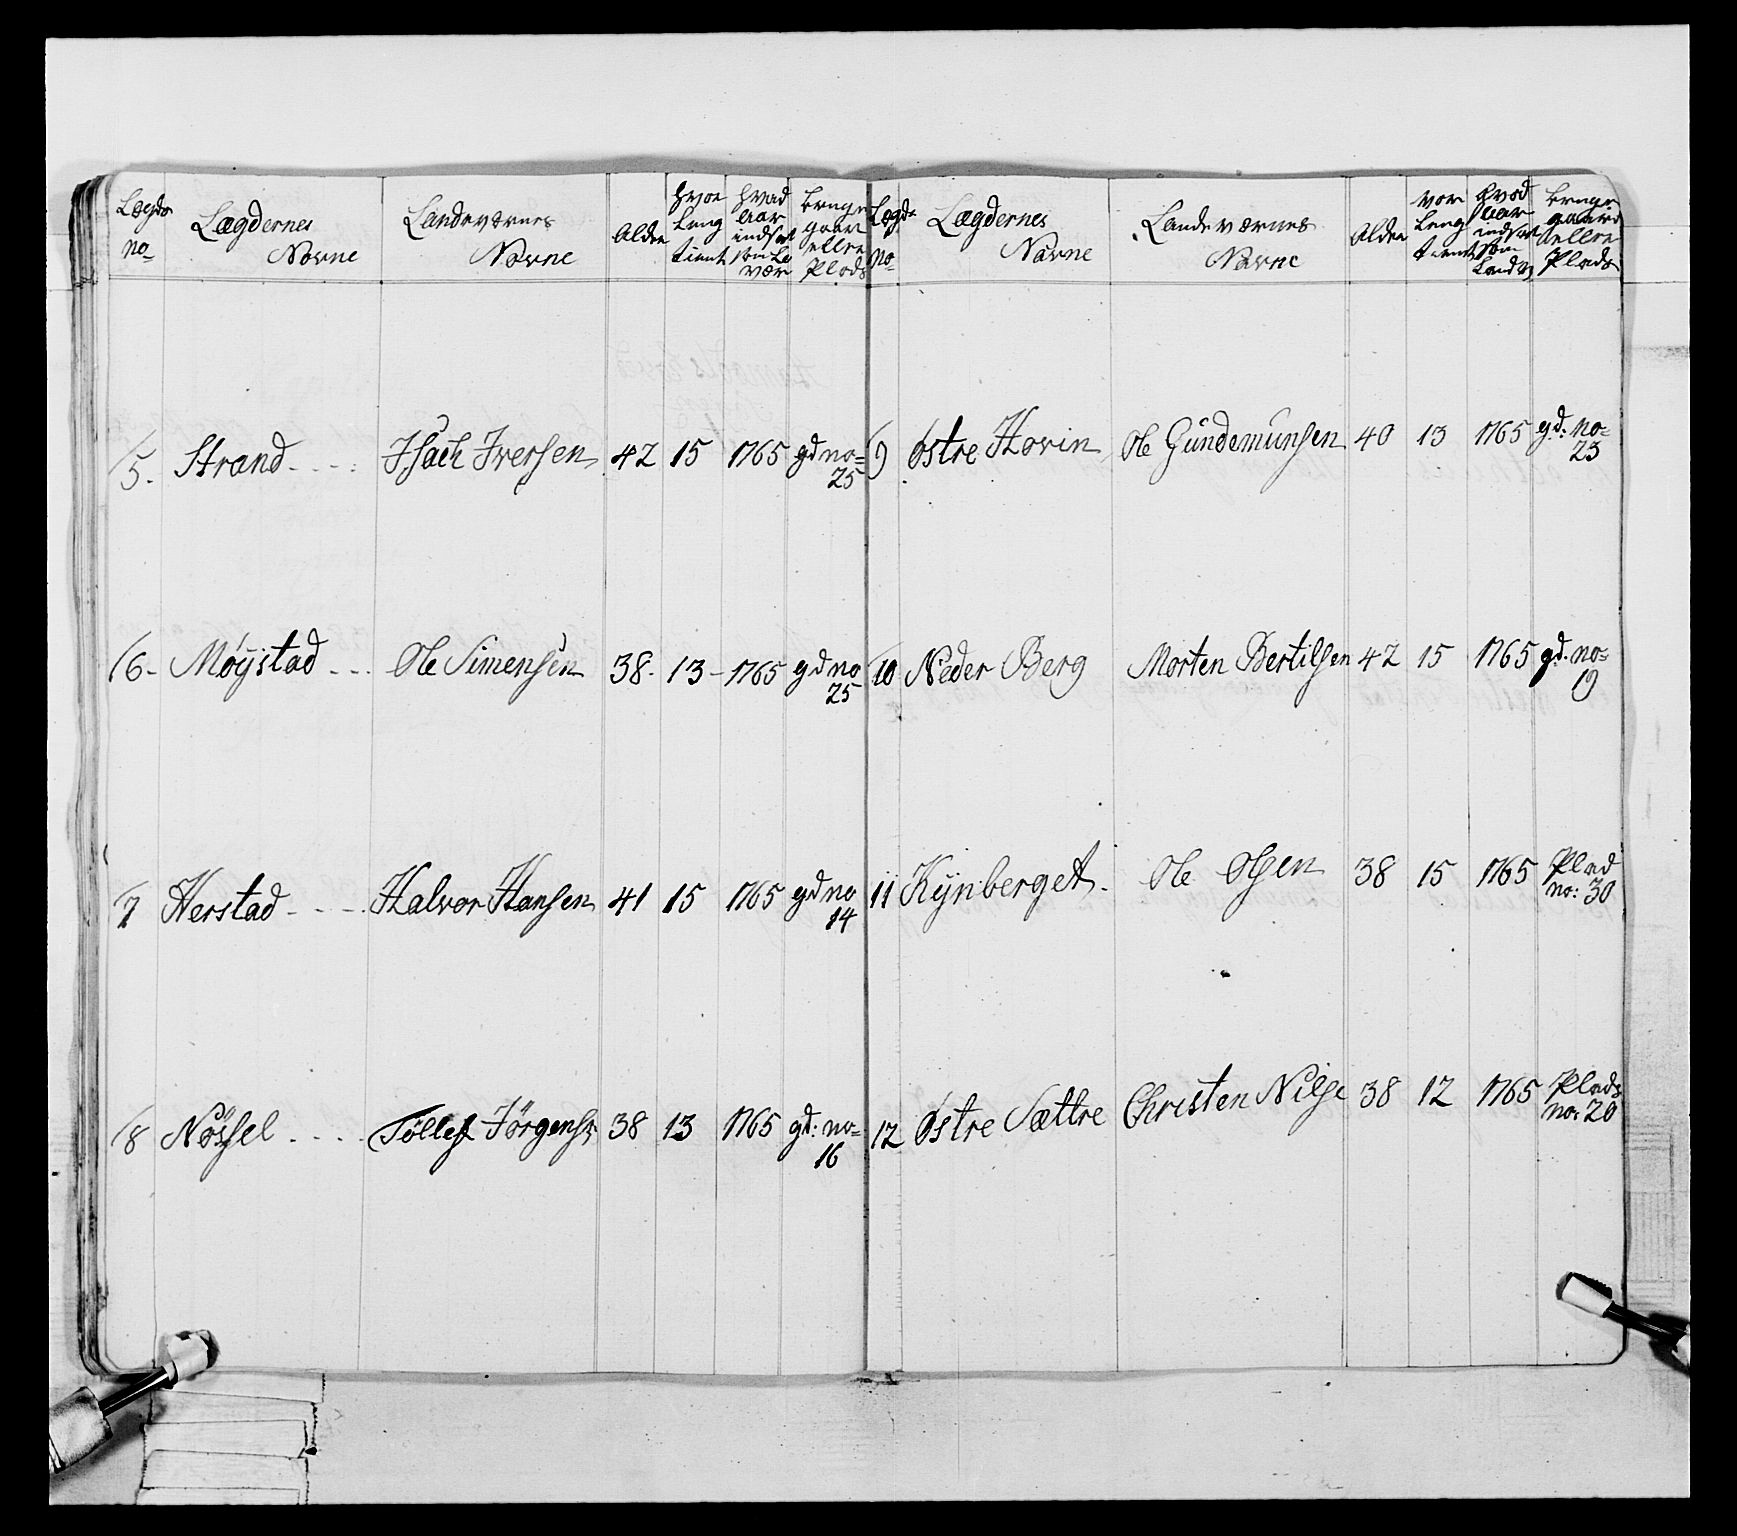 Lægds no=
Lægdernes Navne
Landeværnes Navne
Alder
hvor Lang tient
hvad Aar indsat som La vær
bruge gaar ellre Plads
5. Strand - - - - Isach Iversen 42 15 1765 gd no= 25
6- Møystad - - - Ole Simensen 38. 13 - 1765 gd no 25
7 Herstad - - - - Halvor Hansen 41 15 1765 gd no 14
8 Nøssel - - - - Tollef Jørgens 38 13 1765 gd: no= 16
Lægd. No=
Lægdernes Navne
Landeværnes Navne
Alder
vor Leng tient
hvad Aar indsat som Landv
bruger gaard ellre Plads
9 østre Hovin Ole Gundemunsen 40 13 1765 gd: no= 23
10 Neder Berg Morten Bertilsen 42 15 1765 gd. no= 19
11 Kÿnberget. Ole Olsen 38 15 1765 Plad no: 30
12 østre Sættre Christen Nilse 38 12 1765 Plads no: 20